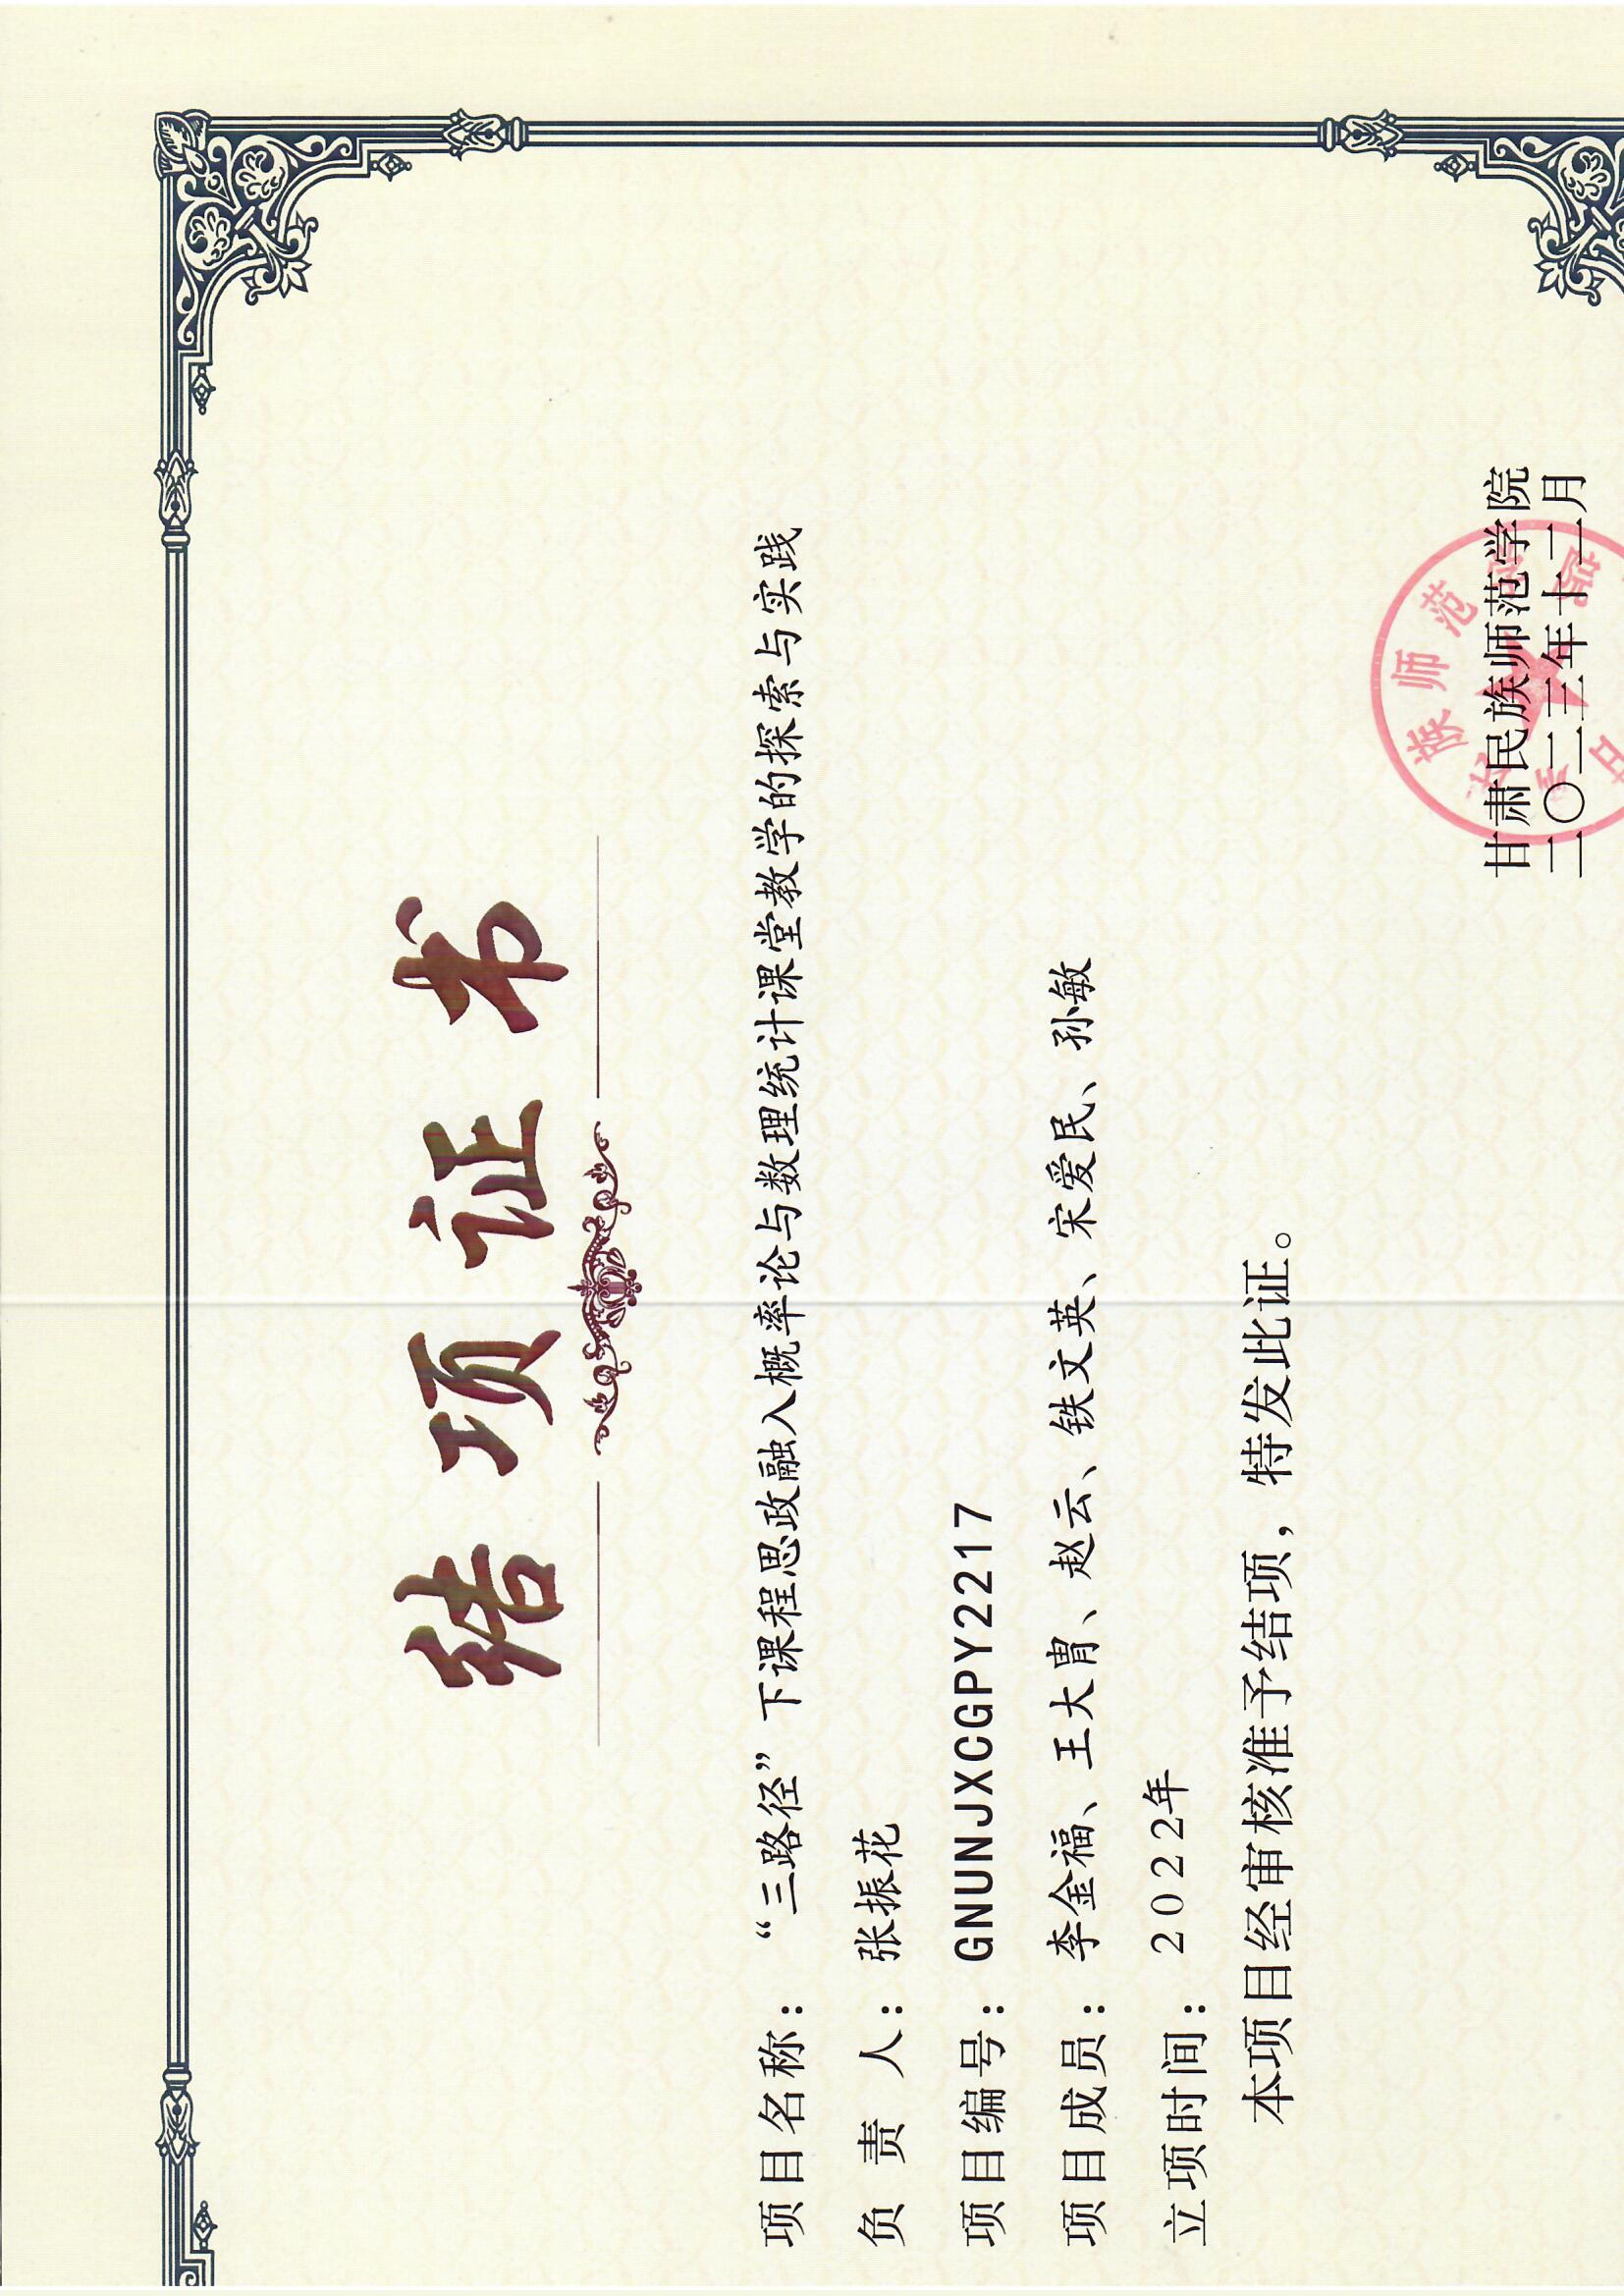 结项证书
项目名称：“三路径”下课程思政融入概率论与数理统计课堂教学的探索与实践
负责人：张振花
项目编号：GNUNJXCGPY2217
项目成员：李金福、王大胄、赵云、铁文英、宋爱民、孙敏
立项时间：2022年
本项目经审核准予结项，特发此证。
甘肃民族师范学院
二〇二三年十二月